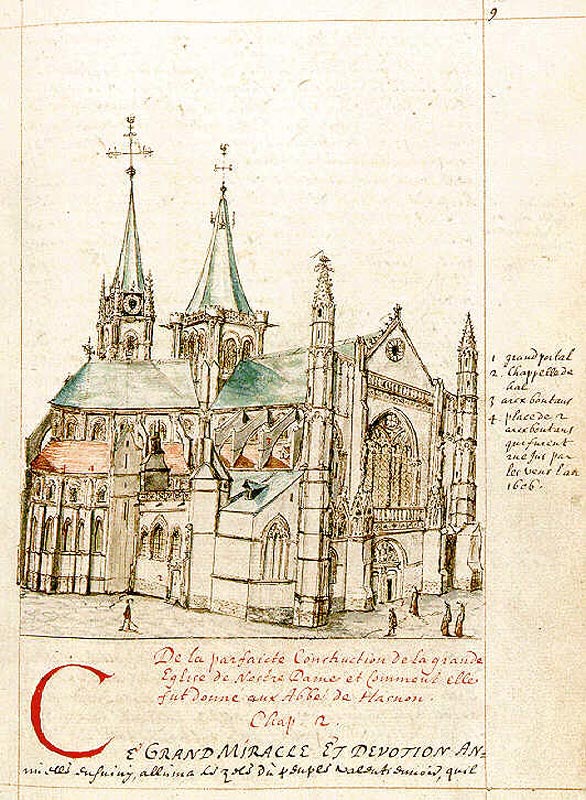 9
1 grand portal
2. Chappelle de
hal
3 arcx boutans
4 place de 2
arcx boutans
qui furent
rue Jus par
les vens l'an
1606.
De la parfaicte Construction de la grande
Eglise de Nostre Dame et Comment elle
fut donné aux Abbé de Hasnon.
Chap. 2.
CE GRAND MIRACLE ET DEVOTION AN-
alluma les zels du peuples valentiennois, quil